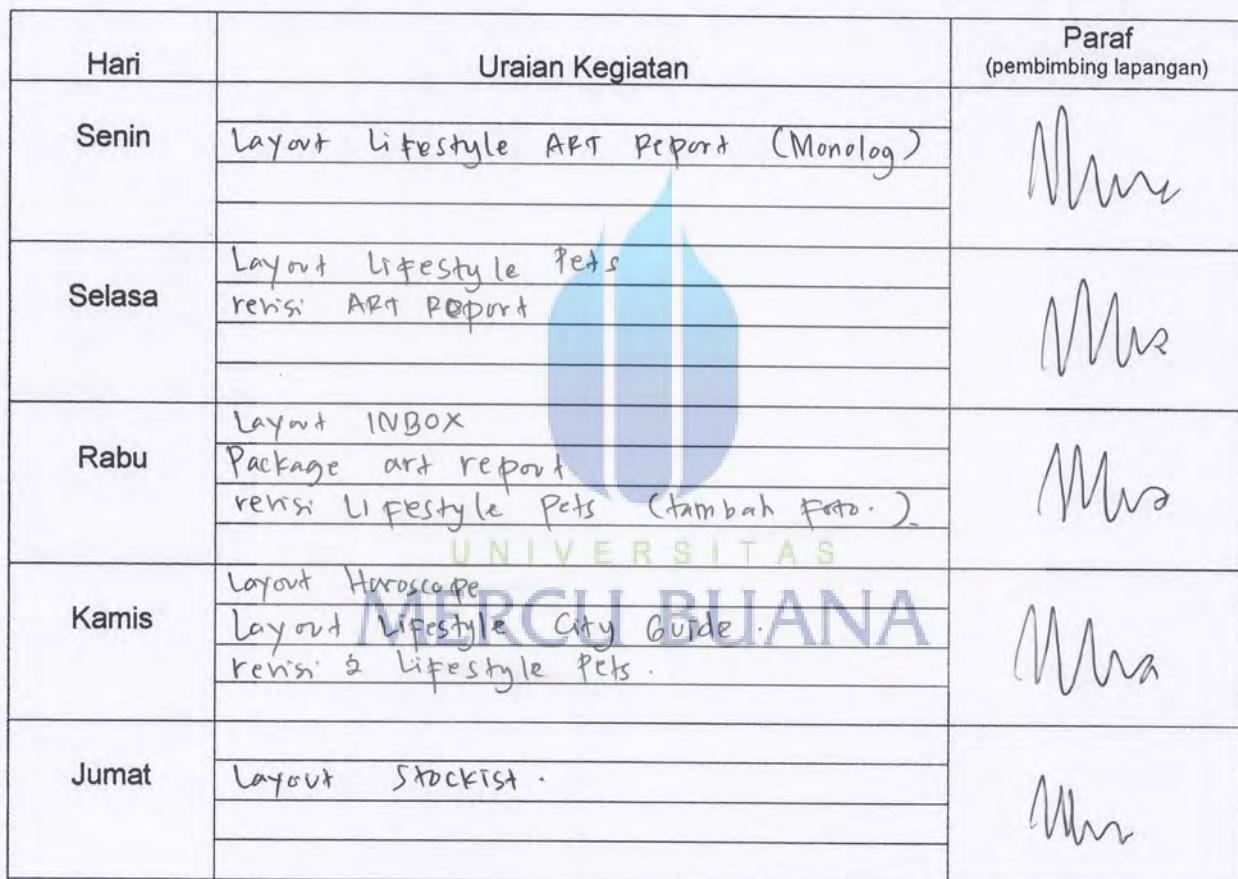 Hari
Uraian Kegiatan
Paraf
(pembimbing lapangan)
Senin
Layout Lifestyle ART Report (Monolog)
Selasa
Layout Lifestyle Pets
revisi ART Report
Rabu
Layout INBOX
Package art report
revisi Lifestyle Pets (tambah foto.)
UNIVERSITAS
MERCU BUANA
Kamis
Layout Horoscope
Layout Lifestyle City Guide.
revisi 2 Lifestyle Pets.
Jumat
Layout Stockist.